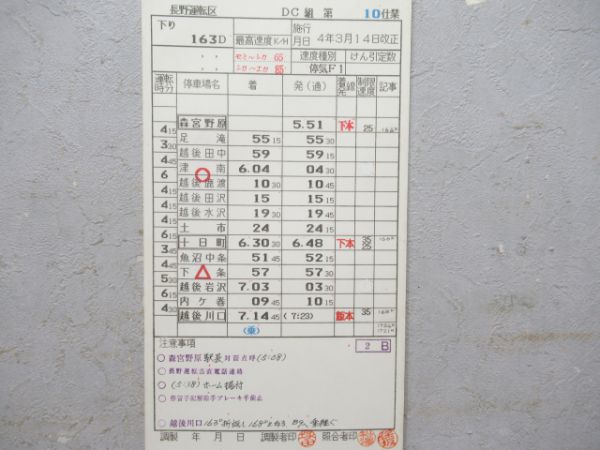 長野運転区 DC組 第 10仕業
下り 163D 最高速度K/H 施行月日 4年3月14日改正
セミ〜ルカ 65 速度種別 けん引定数
ルカ〜エカ 85 停気F1
運転時分 停車場名 着 発(通) 着発線 制限速度 記事
森宮野原 5.51 下本 25
4 15 足滝 55 15 55 30
3 30 越後田中 59 59 15
4 15 津南 6.04 04 30
6 越後鹿渡 10 30 10 45
4 15 越後田沢 15 15 15
4 15 越後水沢 19 30 19 45
4 15 土市 24 24 15
6 15 十日町 6.30 30 6.48 下本
3 45 魚沼中条 51 45 52 15
5 15 下条 57 57 30
5 30 越後岩沢 7.03 03 30
6 内ケ巻 09 45 10 15
4 30 越後川口 7.14 45 (7:23) 飯本 35
(乗)
注意事項 2 B
○ 森宮野原駅長対面点呼(5:08)
○ 長野運転当直電話連絡
○ (5:38)ホーム据付
○
○ 越後川口163D折返し168Dとなる
調製 年 月 日 調製者印 照合者印